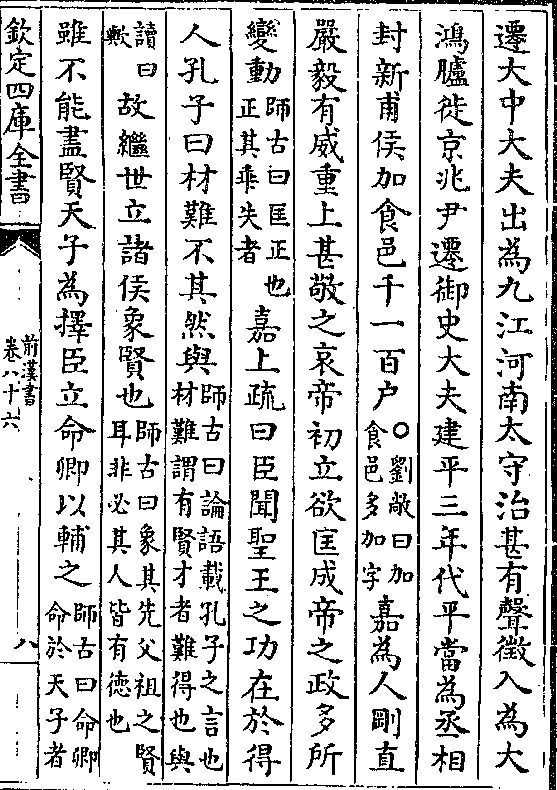 遷大中大夫出為九江河南太守治甚有聲徵入為大
鴻臚徙京兆尹遷御史大夫建平三年代平當為丞相
封新甫侯加食邑千一百户○劉敞曰加食邑多加字嘉為人剛直
嚴毅有威重上甚敬之哀帝初立欲匡成帝之政多所
變動師古曰匡正也正其乖失者嘉上疏曰臣聞聖王之功在於得
人孔子曰材難不其然與師古曰論語載孔子之言也材難謂有賢才者難得也與
讀曰歟故繼世立諸侯象賢也師古曰象其先父祖之賢耳非必其人皆有徳也
雖不能盡賢天子為擇臣立命卿以輔之師古曰命卿命於天子者
欽定四庫全書
前漢書
卷八十六
八